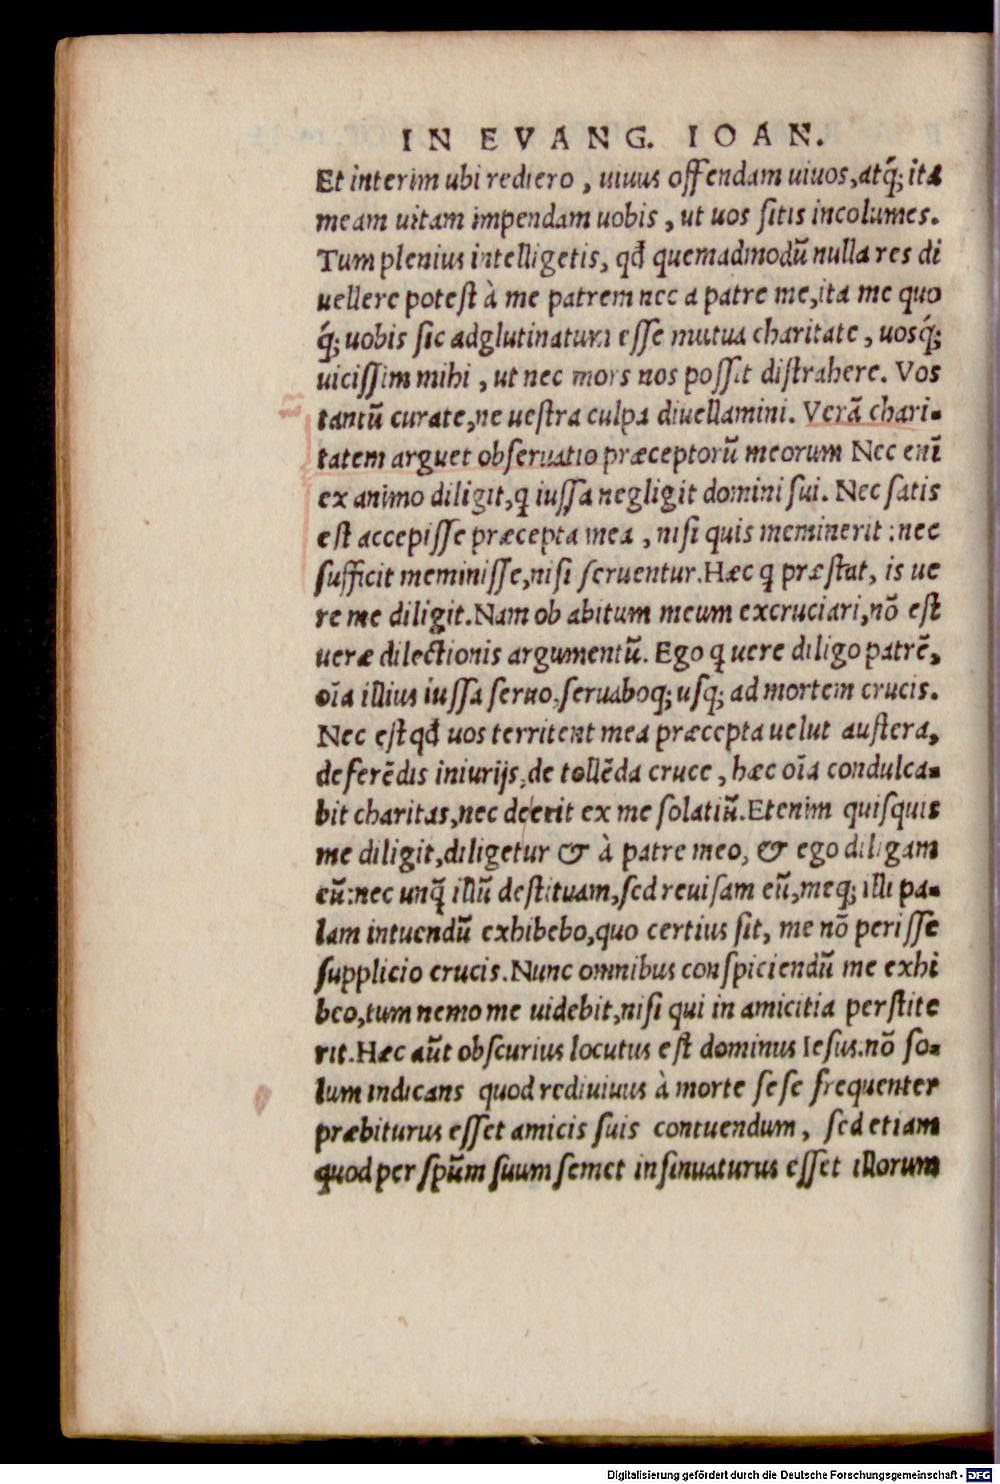 IN EVANG. IOAN.
Et interim ubi rediero, uiuus offendam uiuos, atq́; ita
meam uitam impendam uobis, ut uos ſitis incolumes.
Tum plenius intelligetis, qđ quemadmodũ nulla res di
uellere poteſt à me patrem nec a patre me, ita me quo
q́; uobis ſic adglutinatum eſſe mutua charitate, uosq́;
uiciſſim mihi, ut nec mors nos poſſit diſtrahere. Vos
tantũ curate, ne ueſtra culpa diuellamini. Verã chari-
tatem arguet obſeruatio præceptorũ meorum Nec enĩ
ex animo diligit, q iuſſa negligit domini ſui. Nec ſatis
eſt accepiſſe præcepta mea, niſi quis meminerit: nec
ſufficit meminiſſe, niſi ſeruentur. Hæc q præſtat, is ue
re me diligit. Nam ob abitum meum excruciari, nõ eſt
ueræ dilectionis argumentũ. Ego q uere diligo patrẽ,
oĩa illius iuſſa ſeruo, ſeruaboq; uſq; ad mortem crucis.
Nec eſt qđ uos territent mea præcepta uelut auſtera,
de ferẽdis iniurijs, de tollẽda cruce, hæc oĩa condulca-
bit charitas, nec deerit ex me ſolatiũ. Etenim quiſquis
me diligit, diligetur & à patre meo, & ego diligam
eũ: nec unq̃ illũ deſtituam, ſed reuiſam eũ, meq; illi pa-
lam intuendũ exhibebo, quo certius ſit, me nõ periſſe
ſupplicio crucis. Nunc omnibus conſpiciendũ me exhi
beo, tum nemo me uidebit, niſi qui in amicitia perſtite
rit. Hæc aũt obſcurius locutus eſt dominus Ieſus. nõ ſo-
lum indicans quod rediuiuus à morte ſeſe frequenter
præbiturus eſſet amicis ſuis contuendum, ſed etiam
quod per ſpũm ſuum ſemet inſinuaturus eſſet illorum
Digitalisierung gefördert durch die Deutsche Forschungsgemeinschaft - DFG